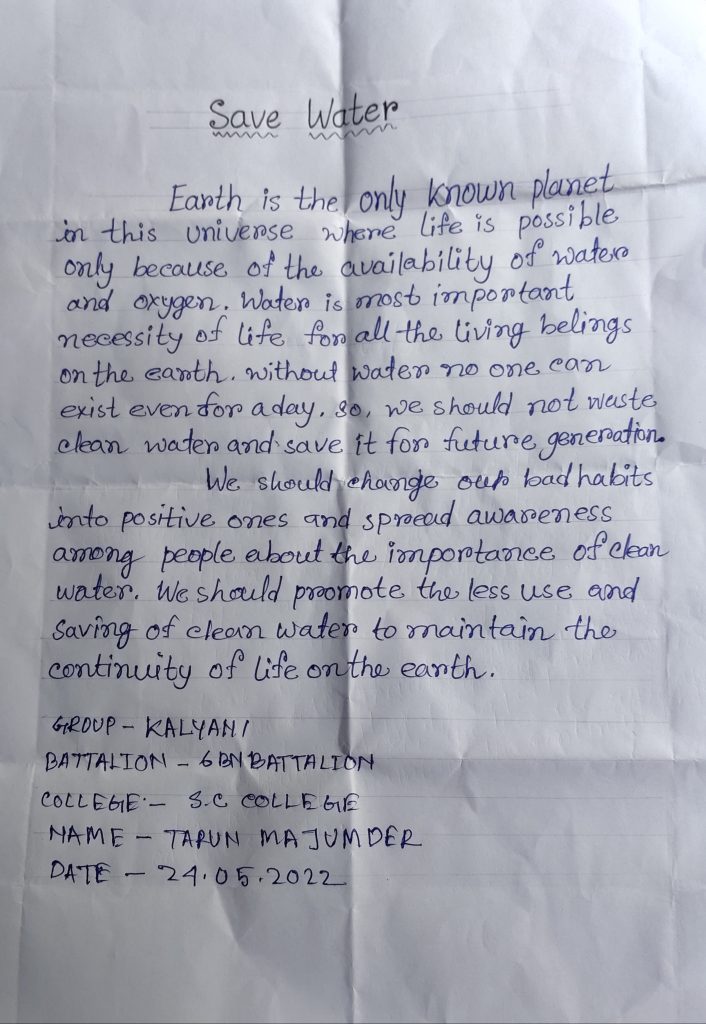 Save Water
Earth is the only known planet
in this universe where life is possible
only because of the availability of water
and oxygen. Water is most important
necessity of life for all the living belings
on the earth. without water no one can
exist even for a day. so, we should not waste
clean water and save it for future generation.
We should change our bad habits
into positive ones and spread awareness
among people about the importance of clean
water. We should promote the less use and
saving of clean water to maintain the
continuity of life on the earth.
GROUP - KALYANI
BATTALION - 6 BN BATTALION
COLLEGE - S.C COLLEGE
NAME - TARUN MAJUMDER
DATE - 24.05.2022